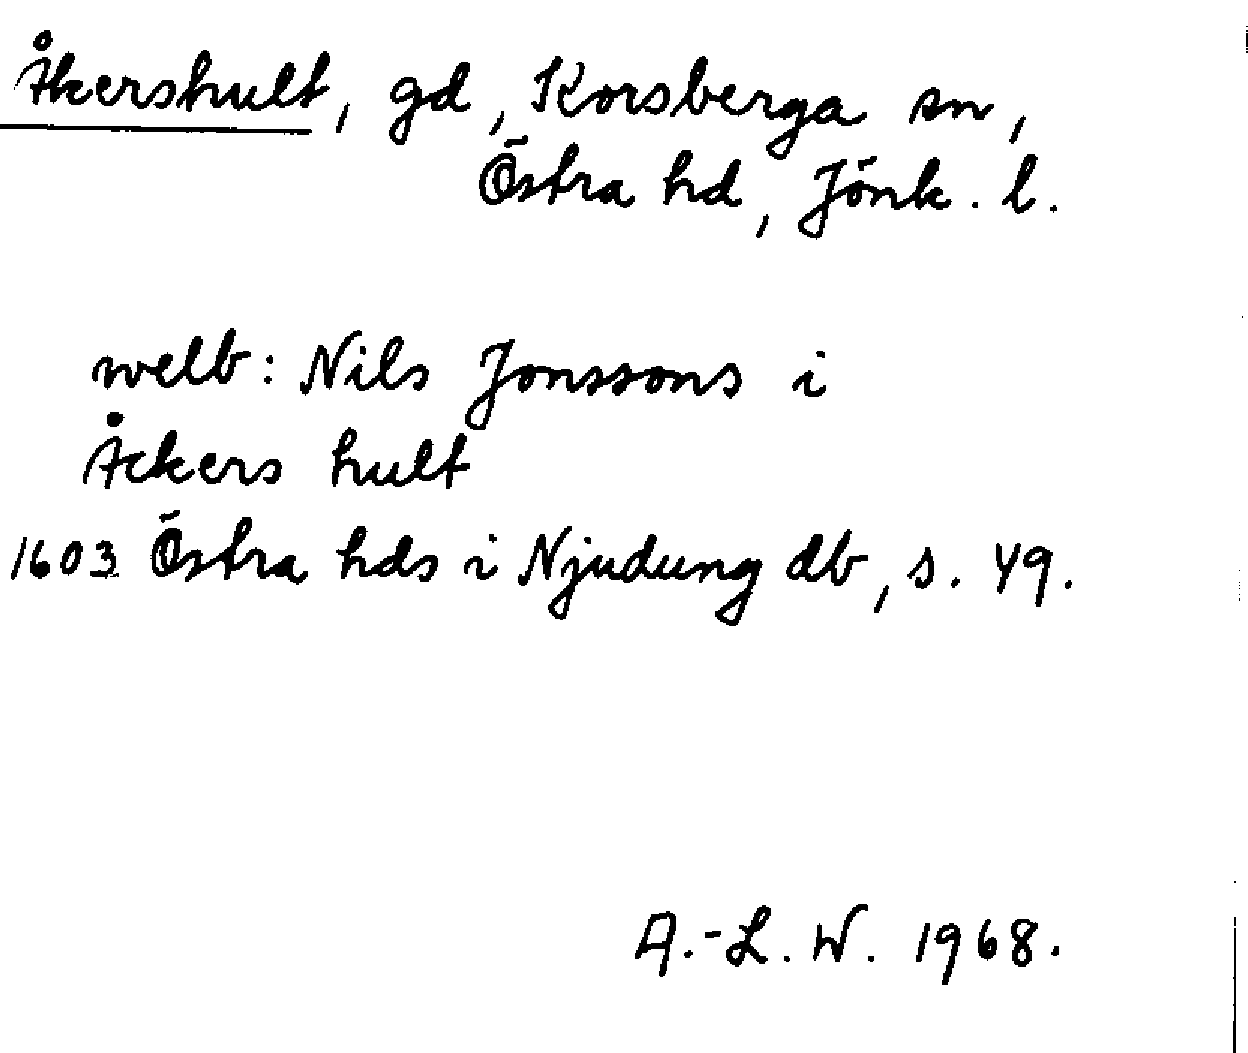 Åkershult, gd, Korsberga sn,
Östra hd, Jönk. l.
welb: Nils Jonssons i
Åckers hult
1603 Östra hds i Njudung db, s. 49.
A.-L. W. 1968.